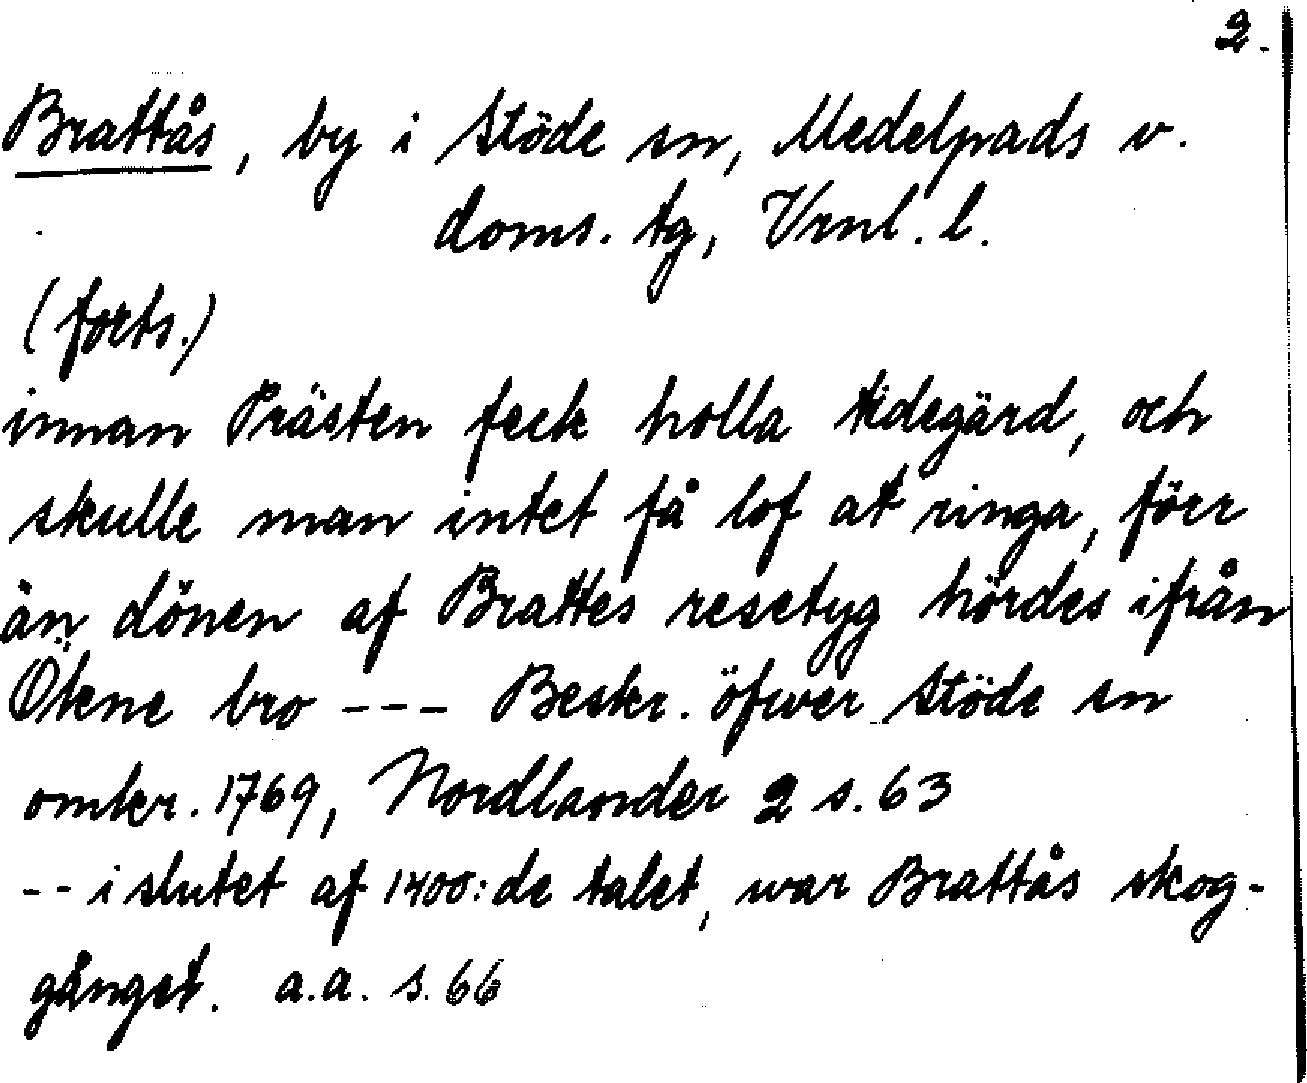 2.
Brattås, by i Stöde sn, Medelpads v.
doms. tg, Vrnl. l.
(forts.)
innan Prästen feck holla tidegärd, och
skulle man intet få lof at ringa, förr
än dönen af Brattes resetyg hördes ifrån
Ökne bro --- Beskr. öfwer Stöde sn
omkr. 1769, Nordlander 2 s. 63
-- i slutet af 1400:de talet, war Brattås skog-
gånget. a.a. s. 66